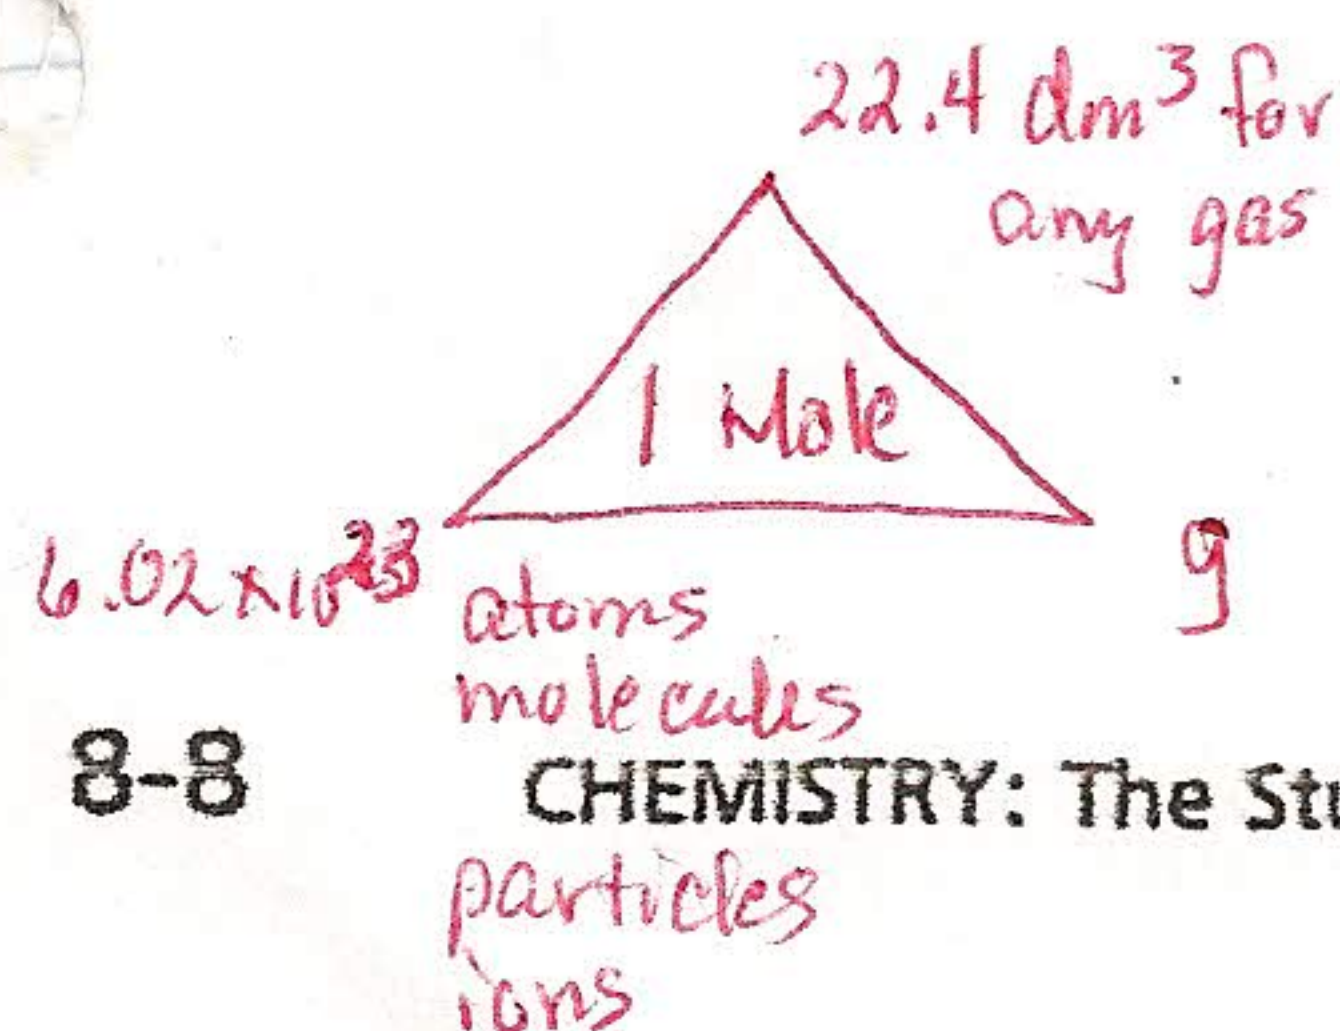 22.4 dm³ for
any gas
1 Mole
6.02x10²³ atoms
g
molecules
8-8 CHEMISTRY: The Stu
particles
ions